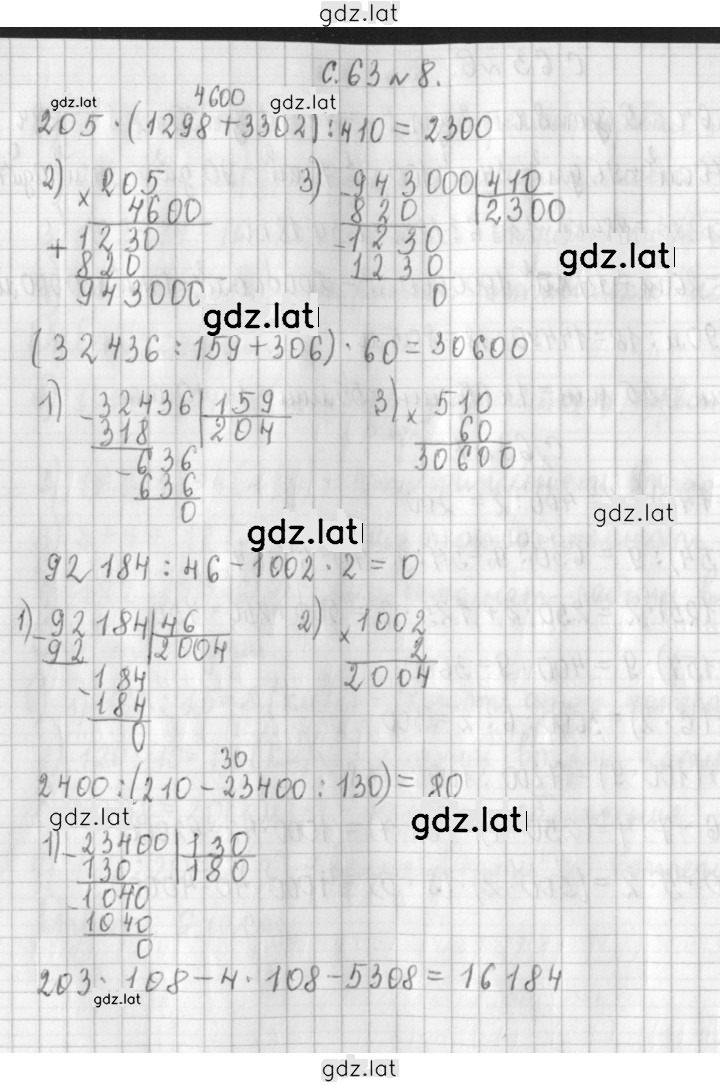 gdz.lat
с. 63 № 8.
gdz.lat 4600 gdz.lat
205 · (1298 + 3302) : 410 = 2300
2) × 205 3) - 943000 | 410
4600 820 | 2300
+ 1230 - 1230
820 1230 gdz.lat
943000 0
gdz.lat
(32436 : 159 + 306) · 60 = 30600
1) - 32436 | 159 3) × 510
318 | 204 60
- 636 30600
636
0
gdz.lat
gdz.lat
92184 : 46 - 1002 · 2 = 0
1) - 92184 | 46 2) × 1002
92 | 2004 2
- 184 2004
184
0
30
2400 : (210 - 23400 : 130) = 80
gdz.lat gdz.lat
1) - 23400 | 130
130 | 180
- 1040
1040
0
203 · 108 - 4 · 108 - 5308 = 16184
gdz.lat
gdz.lat